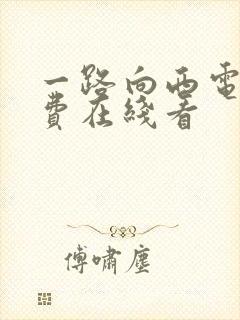 一路向西电
费在线看
傅啸尘